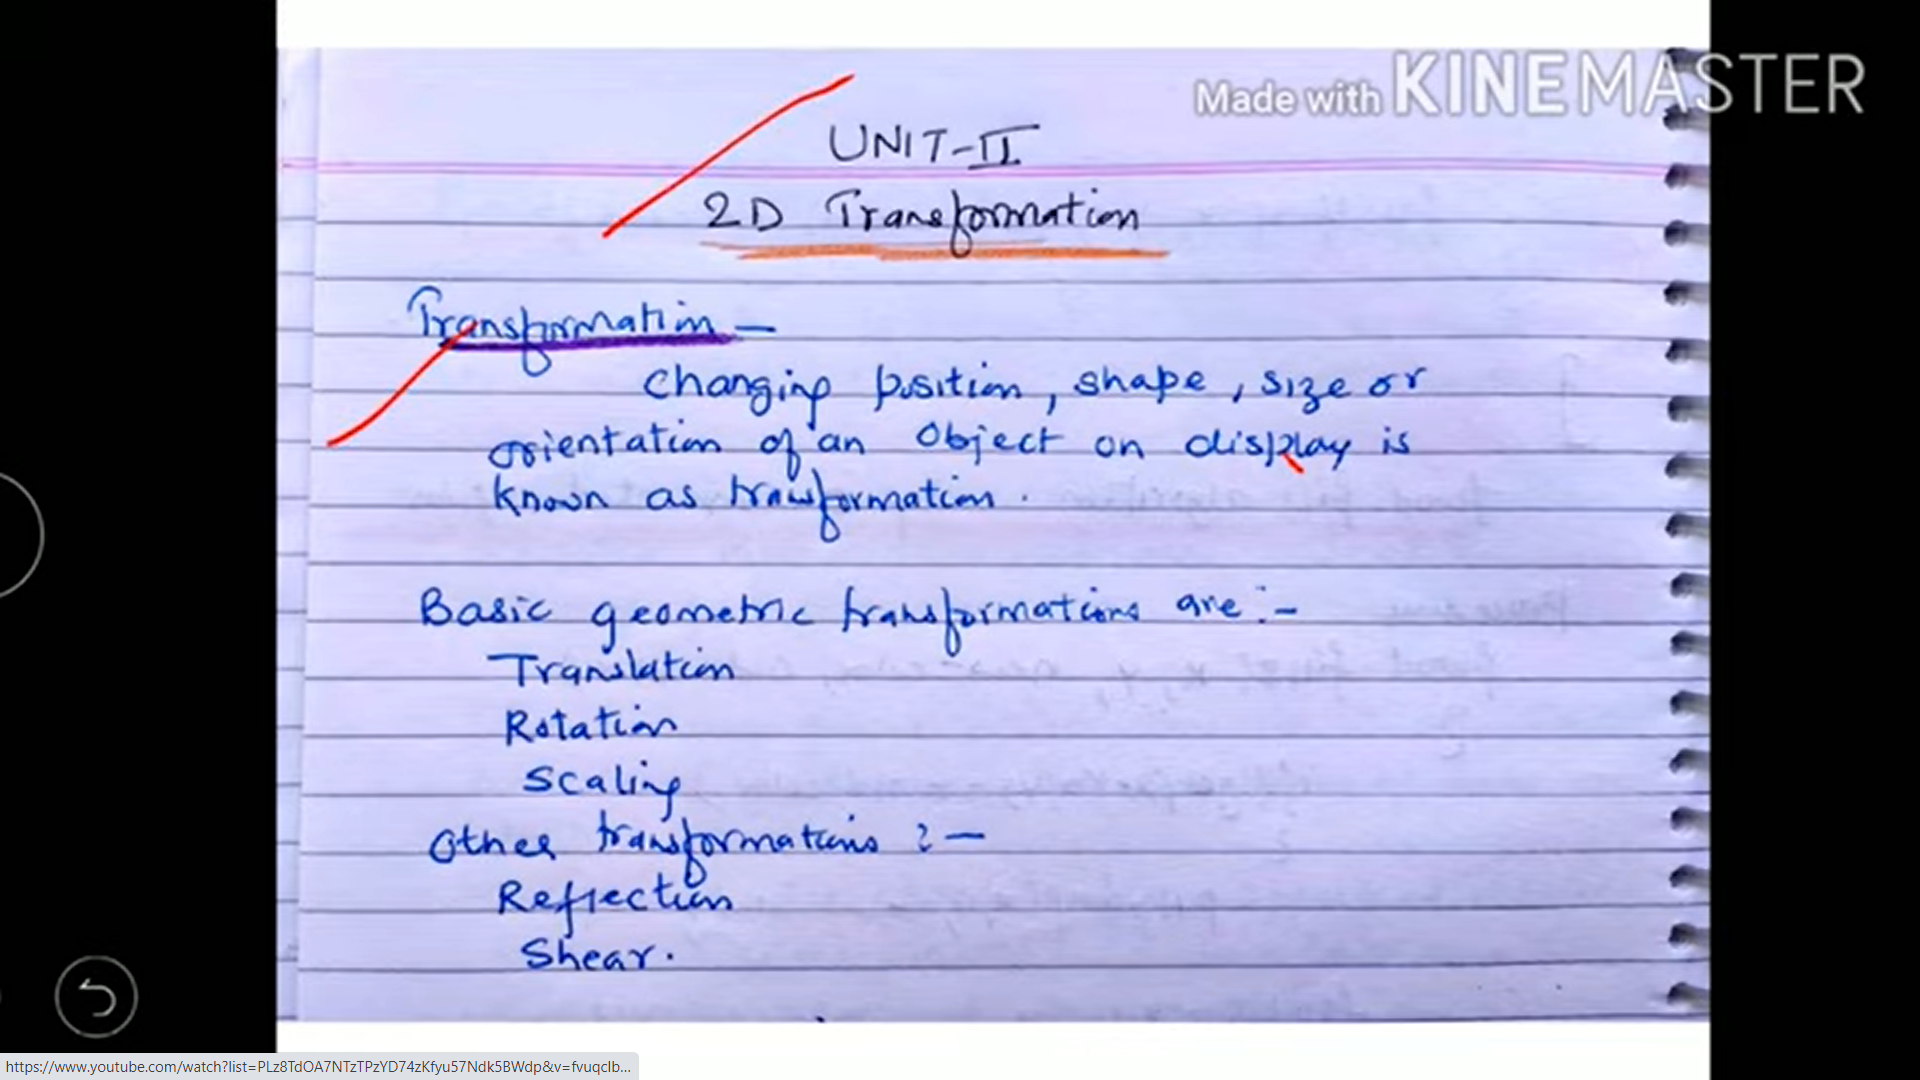 Made with KINEMASTER
UNIT-II
2D Transformation
Transformation –
Changing position, shape, size or
orientation of an Object on display is
known as transformation.
Basic geometric transformations are:-
Translation
Rotation
Scaling
Other transformations :-
Reflection
Shear.
https://www.youtube.com/watch?list=PLz8TdOA7NTzTPzYD74zKfyu57Ndk5BWdp&v=fvuqclb...